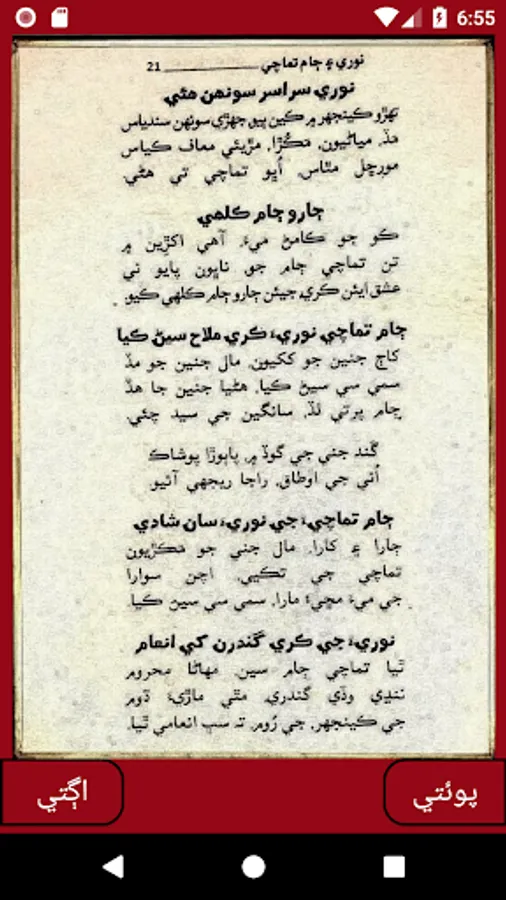 6:55
نوري ۽ ڄام تماچي 21
نوري سراسر سونهن هئي
تهڙو ڪينجهر ۾ ڪين ٻيو، جهڙي سونهن سندياس
هڏ، مياڻيون، مڪُڙا، مڙيئي معاف ڪياس
مورڇل مٿاس، اُڀو تماچي تي هڻي.
ڄارو ڄام ڪلهي
ڪو جو ڪامڻ ميءَ، آهي اکڙين ۾
تن تماچي ڄام جو، تاڻون پايو ني
عشق ايئن ڪري، جيئن ڄارو ڄام ڪلهي ڪيو.
ڄام تماچي نوريءَ ڪري ملاح سيڻ ڪيا
کاڄ جنين جو ککيون، مال جنين جو مڌ
سمي سي سيڻ ڪيا، هڻيا جنين جا هڏ
ڄام پرتي لڏ، سانگين جي سيد چئي.
گند جني جي گوڏ ۾، پاٻوڙا پوشاڪ
اُني جي اوطاق، راڄا ريجهي آئيو
ڄام تماچيءَ جي نوريءَ سان شادي
ڄارا ۽ کارا، مال جني جو مڪڙيون
تماچي جي تڪيي، اچن سوارا
جي ميءَ مڇيءَ مارا، سمي سي سيڻ ڪيا.
نوريءَ جي ڪري گندرن کي انعام
ٿيا تماچي ڄام سين، مهاڻا محروم
ننڍي وڏي گندري، مٿي ماڙيءَ ڌوم
جي ڪينجهر، جي رُوم، تہ سڀ انعامي ٿيا.
اڳتي
پوئتي